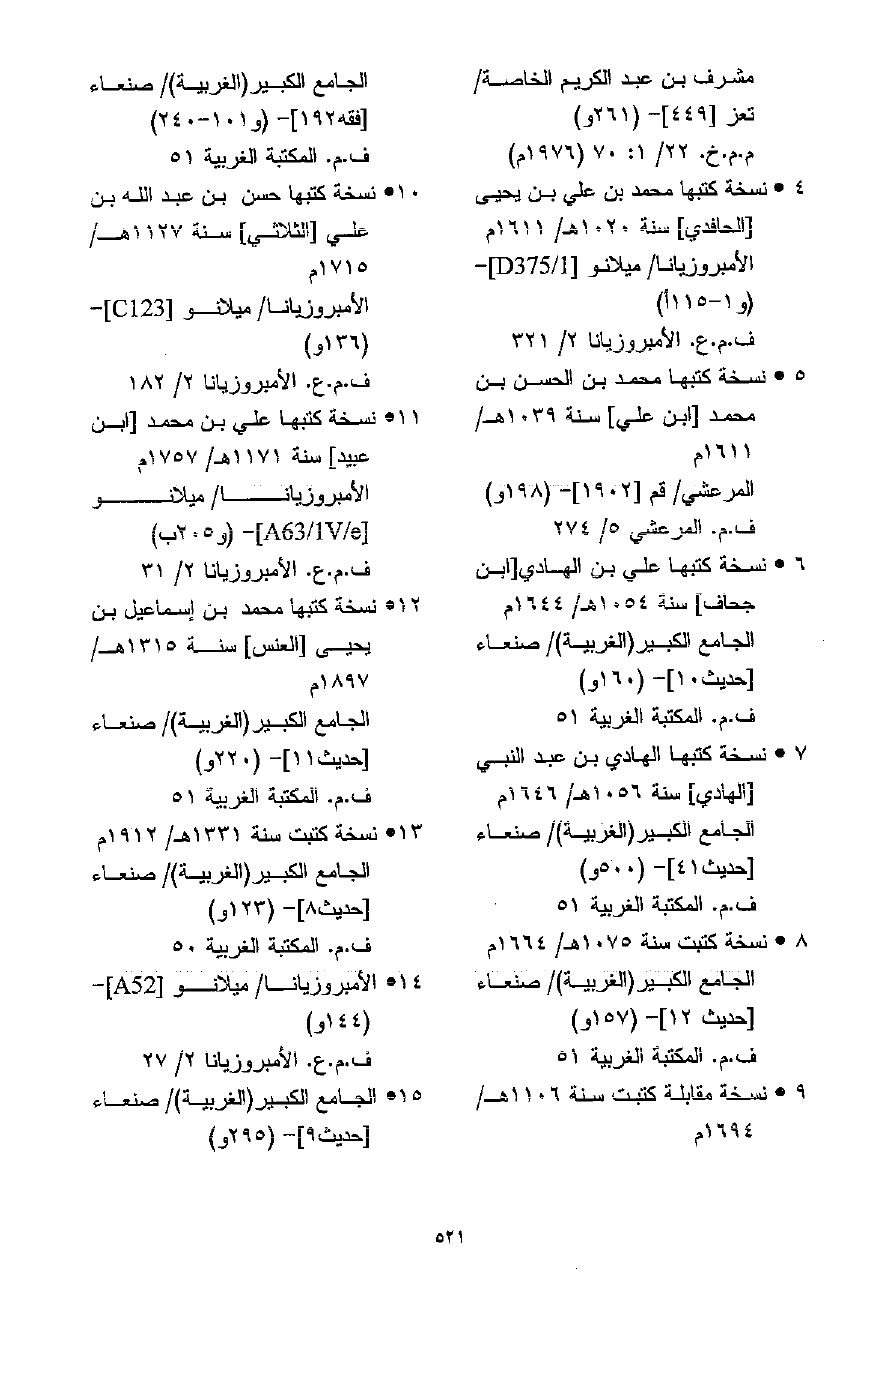 مشرف بن عبد الكريم الخاصة/
تعز [٤٤٩]- (٢٦١و)
م.م.خ. ٢٢/ ١: ٧٠ (١٩٧٦م)
٤ • نسخة كتبها محمد بن علي بن يحيى
[الحافدي] سنة ١٠٢٠هـ/ ١٦١١م
الأمبروزيانا/ ميلانو [D375/1]-
(و١-١١٥أ)
ف.م.ع. الأمبروزيانا ٢/ ٣٢١
٥ • نسخة كتبها محمد بن الحسن بن
محمد [ابن علي] سنة ١٠٣٩هـ/
١٦١١م
المرعشي/ قم [١٩٠٢]- (١٩٨و)
ف.م. المرعشي ٥/ ٢٧٤
٦ • نسخة كتبها علي بن الهادي[ابن
جحاف] سنة ١٠٥٤هـ/ ١٦٤٤م
الجامع الكبير(الغربية)/ صنعاء
[حديث١٠]- (١٦٠و)
ف.م. المكتبة الغربية ٥١
٧ • نسخة كتبها الهادي بن عبد النبي
[الهادي] سنة ١٠٥٦هـ/ ١٦٤٦م
الجامع الكبير(الغربية)/ صنعاء
[حديث٤١]- (٥٠٠و)
ف.م. المكتبة الغربية ٥١
٨ • نسخة كتبت سنة ١٠٧٥هـ/ ١٦٦٤م
الجامع الكبير(الغربية)/ صنعاء
[حديث ١٢]- (١٥٧و)
ف.م. المكتبة الغربية ٥١
٩ • نسخة مقابلة كتبت سنة ١١٠٦هـ/
١٦٩٤م
الجامع الكبير(الغربية)/ صنعاء
[فقه١٩٢]- (و١٠١-٢٤٠)
ف.م. المكتبة الغربية ٥١
١٠• نسخة كتبها حسن بن عبد الله بن
علي [الثلاثي] سنة ١١٢٧هـ/
١٧١٥م
الأمبروزيانا/ ميلانو [C123]-
(١٣٦و)
ف.م.ع. الأمبروزيانا ٢/ ١٨٢
١١• نسخة كتبها علي بن محمد [ابن
عبيد] سنة ١١٧١هـ/ ١٧٥٧م
الأمبروزيانا/ ميلانو
[A63/1V/e]- (و٢٠٥ب)
ف.م.ع. الأمبروزيانا ٢/ ٣١
١٢• نسخة كتبها محمد بن إسماعيل بن
يحيى [العنس] سنة ١٣١٥هـ/
١٨٩٧م
الجامع الكبير(الغربية)/ صنعاء
[حديث١١]- (٢٢٠و)
ف.م. المكتبة الغربية ٥١
١٣• نسخة كتبت سنة ١٣٣١هـ/ ١٩١٢م
الجامع الكبير(الغربية)/ صنعاء
[حديث٨]- (١٢٣و)
ف.م. المكتبة الغربية ٥٠
١٤• الأمبروزيانا/ ميلانو [A52]-
(١٤٤و)
ف.م.ع. الأمبروزيانا ٢/ ٢٧
١٥• الجامع الكبير(الغربية)/ صنعاء
[حديث٩]- (٢٩٥و)
٥٢١